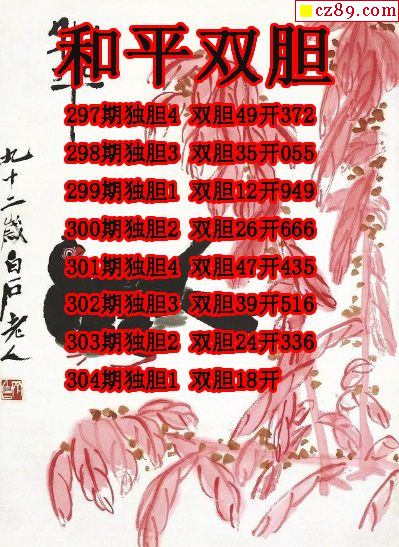 cz89.com
和平双胆
297期独胆4 双胆49开372
298期独胆3 双胆35开055
299期独胆1 双胆12开949
300期独胆2 双胆26开666
301期独胆4 双胆47开435
302期独胆3 双胆39开516
303期独胆2 双胆24开336
304期独胆1 双胆18开
九十二歲白石老人